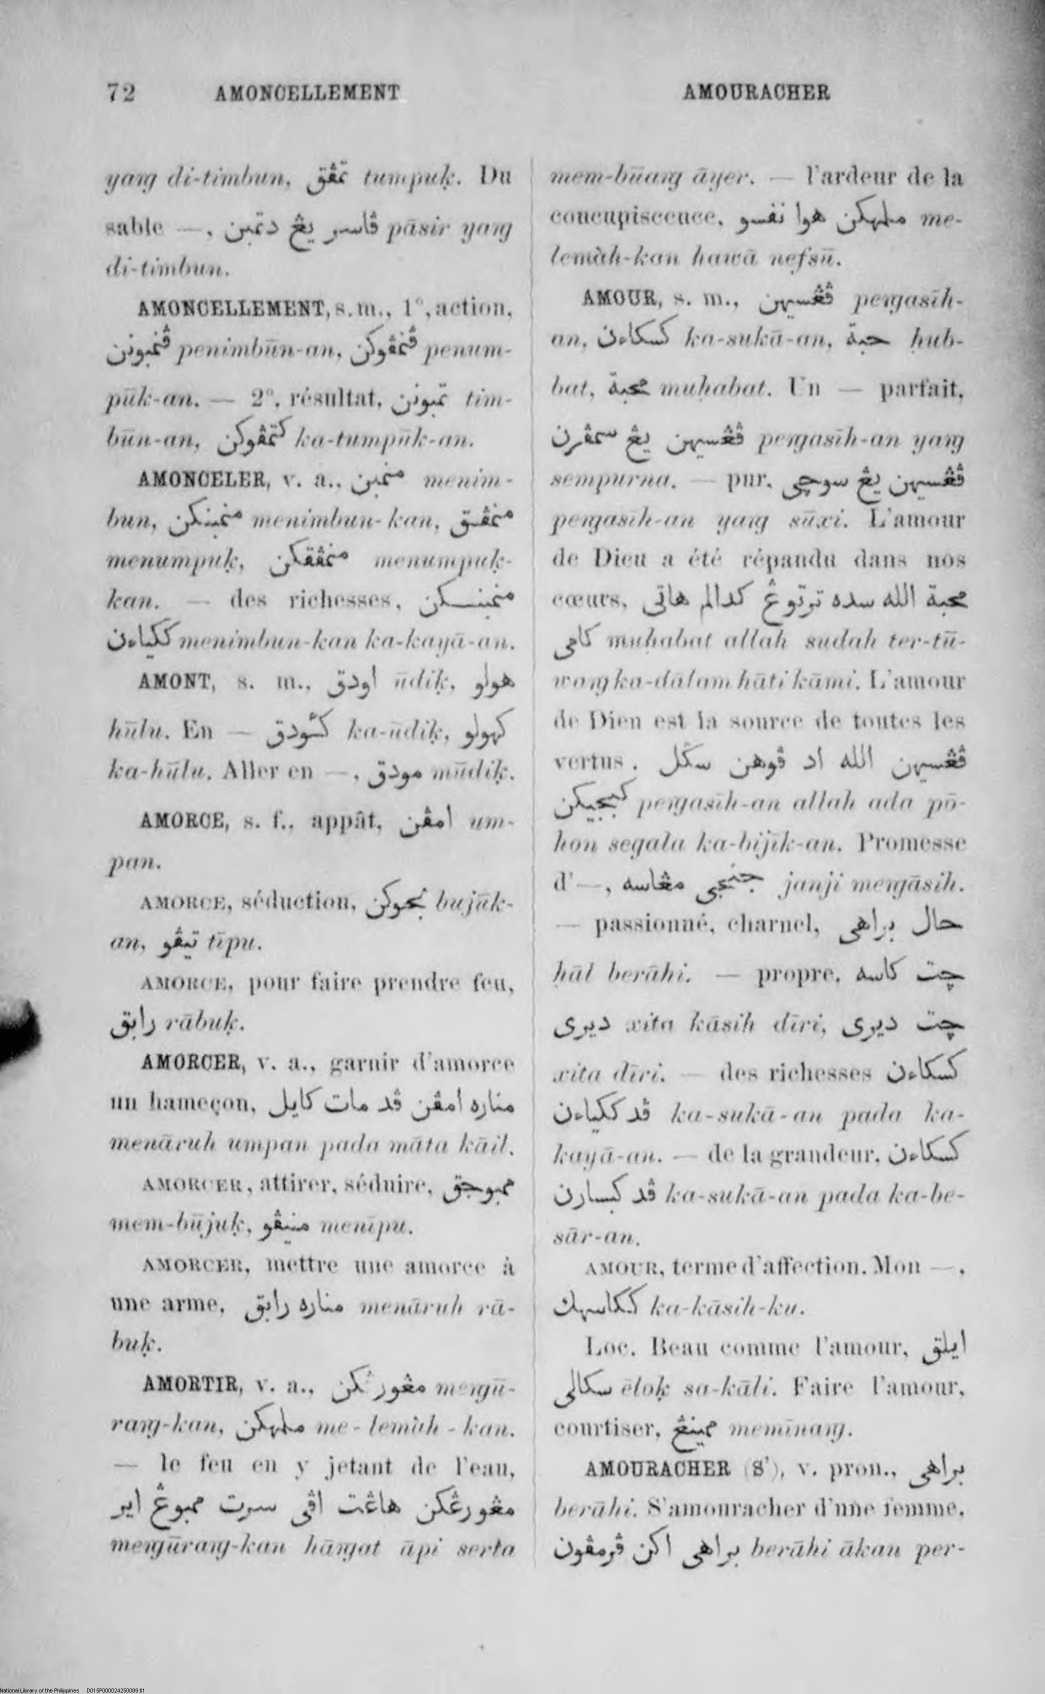 72 AMONCELLEMENT AMOURACHER
yaṅg di-timbun, تمڤق tumpuḳ. Du
sable —, ڤاسر يڠ دتمبن pāsir yaṅg
di-timbun.
AMONCELLEMENT, s. m., 1°, action,
ڤنمبونن penimbūn-an, ڤنمڤوکن penum-
pūk-an. — 2°, résultat, تمبونن tim-
būn-an, کتمڤوکن ka-tumpūk-an.
AMONCELER, v. a., منمبن menim-
bun, منمبنکن menimbun-kan, منمڤق
menumpuḳ, منمڤقکن menumpuḳ-
kan. — des richesses, منمبنکن
ککياءن menimbun-kan ka-kayā-an.
AMONT, s. m., اودق ūdiḳ, هولو
hūlu. En — کئودق ka-ūdiḳ, کهولو
ka-hūlu. Aller en —, مودق mūdiḳ.
AMORCE, s. f., appât, امڤن um-
pan.
AMORCE, séduction, بجوکن bujūk-
an, تيڤو tīpu.
AMORCE, pour faire prendre feu,
رابق rābuḳ.
AMORCER, v. a., garnir d'amorce
un hameçon, مناره امڤن ڤد مات کايل
menāruh umpan pada māta kāil.
AMORCER, attirer, séduire, ممبوجق
mem-būjuḳ, منيڤو menīpu.
AMORCER, mettre une amorce à
une arme, مناره رابق menāruh rā-
buḳ.
AMORTIR, v. a., مڠورڠکن meṅgū-
raṅg-kan, ملمهکن me-lemàh-kan.
— le feu en y jetant de l'eau,
مڠورڠکن هاڠت اڤي سرت ممبوڠ اير
meṅgūraṅg-kan hāṅgat āpi serta
mem-būaṅg āyer. — l'ardeur de la
concupiscence, ملمهکن هوا نفسو me-
lemàh-kan hawā nefsū.
AMOUR, s. m., ڤڠسيهن peṅgasīh-
an, کسکاءن ka-sukā-an, حبة ḥub-
bat, محبة muḥabat. Un — parfait,
ڤڠسيهن يڠ سمڤرن peṅgasīh-an yaṅg
sempurna. — pur, ڤڠسيهن يڠ سوچي
peṅgasīh-an yaṅg sūxi. L'amour
de Dieu a été répandu dans nos
cœurs, محبة الله سده ترتوڠ کدالم هاتي
کامي muḥabat allah sudah ter-tū-
waṅg ka-dālam hāti kāmi. L'amour
de Dieu est la source de toutes les
vertus. ڤڠسيهن الله اد ڤوهن سکل
کبجيکن peṅgasīh-an allah ada pō-
hon segala ka-bijīk-an. Promesse
d'—, جنجي مڠاسه janji meṅgāsih.
— passionné, charnel, حال براهي
ḥāl berāhi. — propre, چت کاسه
ديري xita kāsih dīri, چت ديري
xita dīri. — des richesses کسکاءن
ڤد ککياءن ka-sukā-an pada ka-
kayā-an. — de la grandeur, کسکاءن
ڤد کبسارن ka-sukā-an pada ka-be-
sār-an.
AMOUR, terme d'affection. Mon —,
ککاسهک ka-kāsih-ku.
Loc. Beau comme l'amour, ايلق
سکالي ēloḳ sa-kāli. Faire l'amour,
courtiser, ممينڠ memīnaṅg.
AMOURACHER (S'), v. pron., براهي
berāhi. S'amouracher d'une femme,
براهي اکن ڤرمڤون berāhi ākan per-
National Library of the Philippines